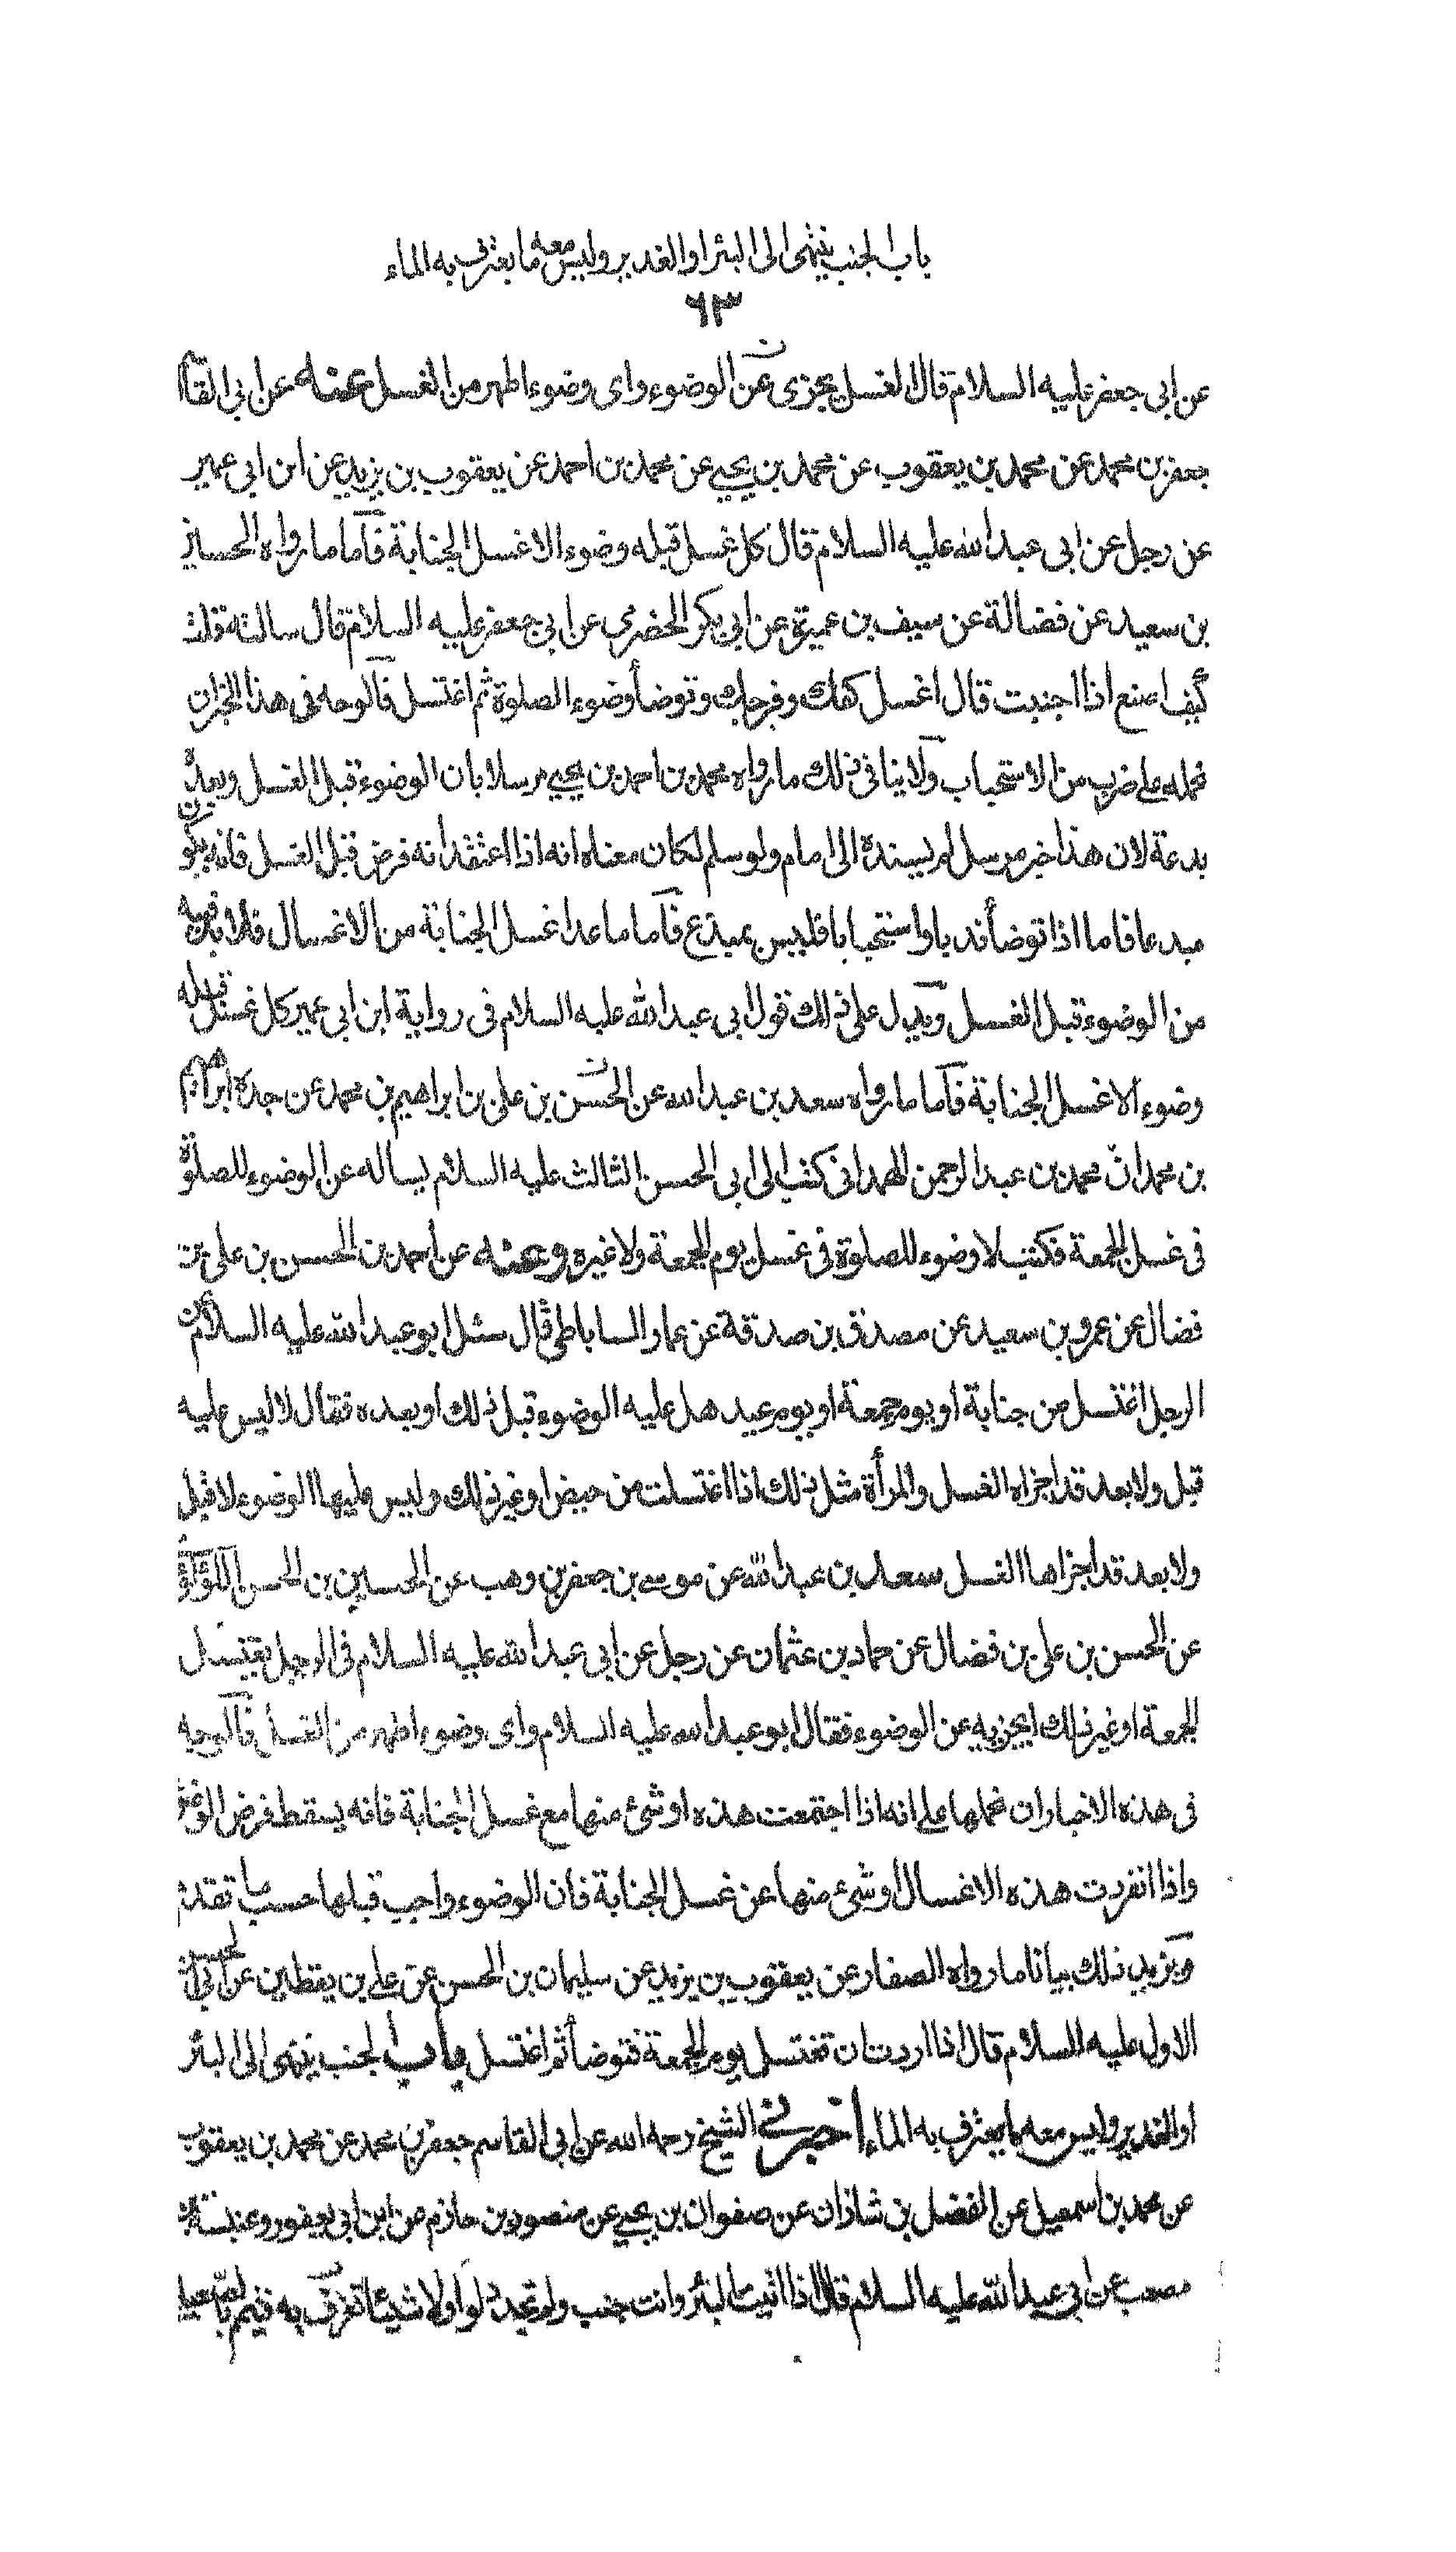 باب الجنب ينتهى الى البئر او الغدير وليس معه ما يغترف به الماء
٦٣
عن ابى جعفر عليه السلام قال الغسل يجزى عن الوضوء واى وضوء اطهر من الغسل عنه عن ابى القاسم
جعفر بن محمد عن محمد بن يعقوب عن محمد بن يحيى عن محمد بن احمد عن يعقوب بن يزيد عن ابن ابى عمير
عن رجل عن ابى عبد الله عليه السلام قال كل غسل قبله وضوء الا غسل الجنابة فاما ما رواه الحسين
بن سعيد عن فضالة عن سيف بن عميرة عن ابى بكر الحضرمى عن ابى جعفر عليه السلام قال سالته قلت
كيف اصنع اذا اجنبت قال اغسل كفك وفرجك وتوضأ وضوء الصلوة ثم اغتسل فالوجه فى هذا الخبر ان
نحمله على ضرب من الاستحباب ولا ينافى ذلك ما رواه محمد بن احمد بن يحيى مرسلا بان الوضوء قبل الغسل وبعده
بدعة لان هذا خبر مرسل لم يسنده الى امام ولو سلم لكان معناه انه اذا اعتقد انه فرض قبل الغسل فانه يكون
مبدعا فاما اذا توضأ ندبا واستحبابا فليس بمبدع فاما ما عدا غسل الجنابة من الاغسال فلا بد فيه
من الوضوء قبل الغسل ويدل على ذلك قول ابى عبد الله عليه السلام فى رواية ابن ابى عمير كل غسل قبله
وضوء الا غسل الجنابة فاما ما رواه سعد بن عبد الله عن الحسن بن على بن ابراهيم بن محمد عن جده ابراهيم
بن محمد ان محمد بن عبد الرحمن الهمدانى كتب الى ابى الحسن الثالث عليه السلام يساله عن الوضوء للصلوة
فى غسل الجمعة فكتب لا وضوء للصلوة فى غسل يوم الجمعة ولا غيره وعنه عن احمد بن الحسن بن على بن
فضال عن عمرو بن سعيد عن مصدق بن صدقة عن عمار الساباطى قال سئل ابو عبد الله عليه السلام عن
الرجل اغتسل من جنابة او يوم جمعة او يوم عيد هل عليه الوضوء قبل ذلك او بعده فقال لا ليس عليه
قبل ولا بعد قد اجزاه الغسل والمرأة مثل ذلك اذا اغتسلت من حيض او غير ذلك وليس عليها الوضوء لا قبل
ولا بعد قد اجزاها الغسل سعد بن عبد الله عن موسى بن جعفر بن وهب عن الحسين بن الحسن اللؤلؤى
عن الحسن بن على بن فضال عن حماد بن عثمان عن رجل عن ابى عبد الله عليه السلام فى الرجل يغتسل
الجمعة او غير ذلك ايجزيه عن الوضوء فقال ابو عبد الله عليه السلام واى وضوء اطهر من الغسل فالوجه
فى هذه الاخبار ان نحملها على انه اذا اجتمعت هذه او شئ منها مع غسل الجنابة فانه يسقط فرض الوضوء
واذا انفردت هذه الاغسال او شئ منها عن غسل الجنابة فان الوضوء واجب قبلها حسب ما تقدم
ويزيد ذلك بيانا ما رواه الصفار عن يعقوب بن يزيد عن سليمان بن الحسن عن على بن يقطين عن ابى الحسن
الاول عليه السلام قال اذا اردت ان تغتسل يوم الجمعة فتوضأ ثم اغتسل باب الجنب ينتهى الى البئر
او الغدير وليس معه ما يغترف به الماء اخبرنى الشيخ رحمه الله عن ابى القاسم جعفر بن محمد عن محمد بن يعقوب
عن محمد بن اسمعيل عن الفضل بن شاذان عن صفوان بن يحيى عن منصور بن حازم عن ابن ابى يعفور وعنبسة بن
مصعب عن ابى عبد الله عليه السلام قال اذا اتيت البئر وانت جنب ولم تجد دلوا ولا شيئا تغرف به فتيمم بالصعيد